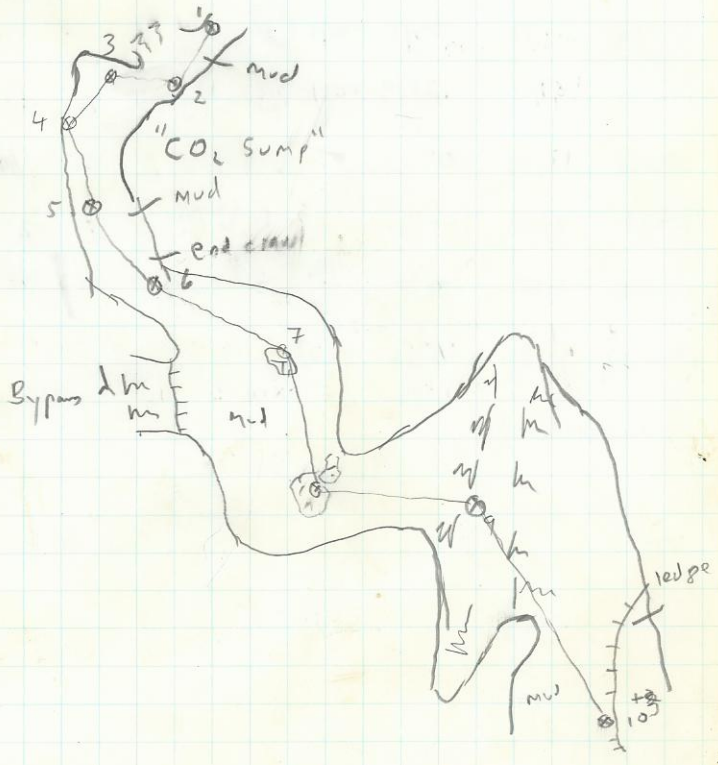 1
3
mud
2
4
"CO2 Sump"
5
mud
end crawl
6
7
Bypass
mud
9
ledge
mud
10